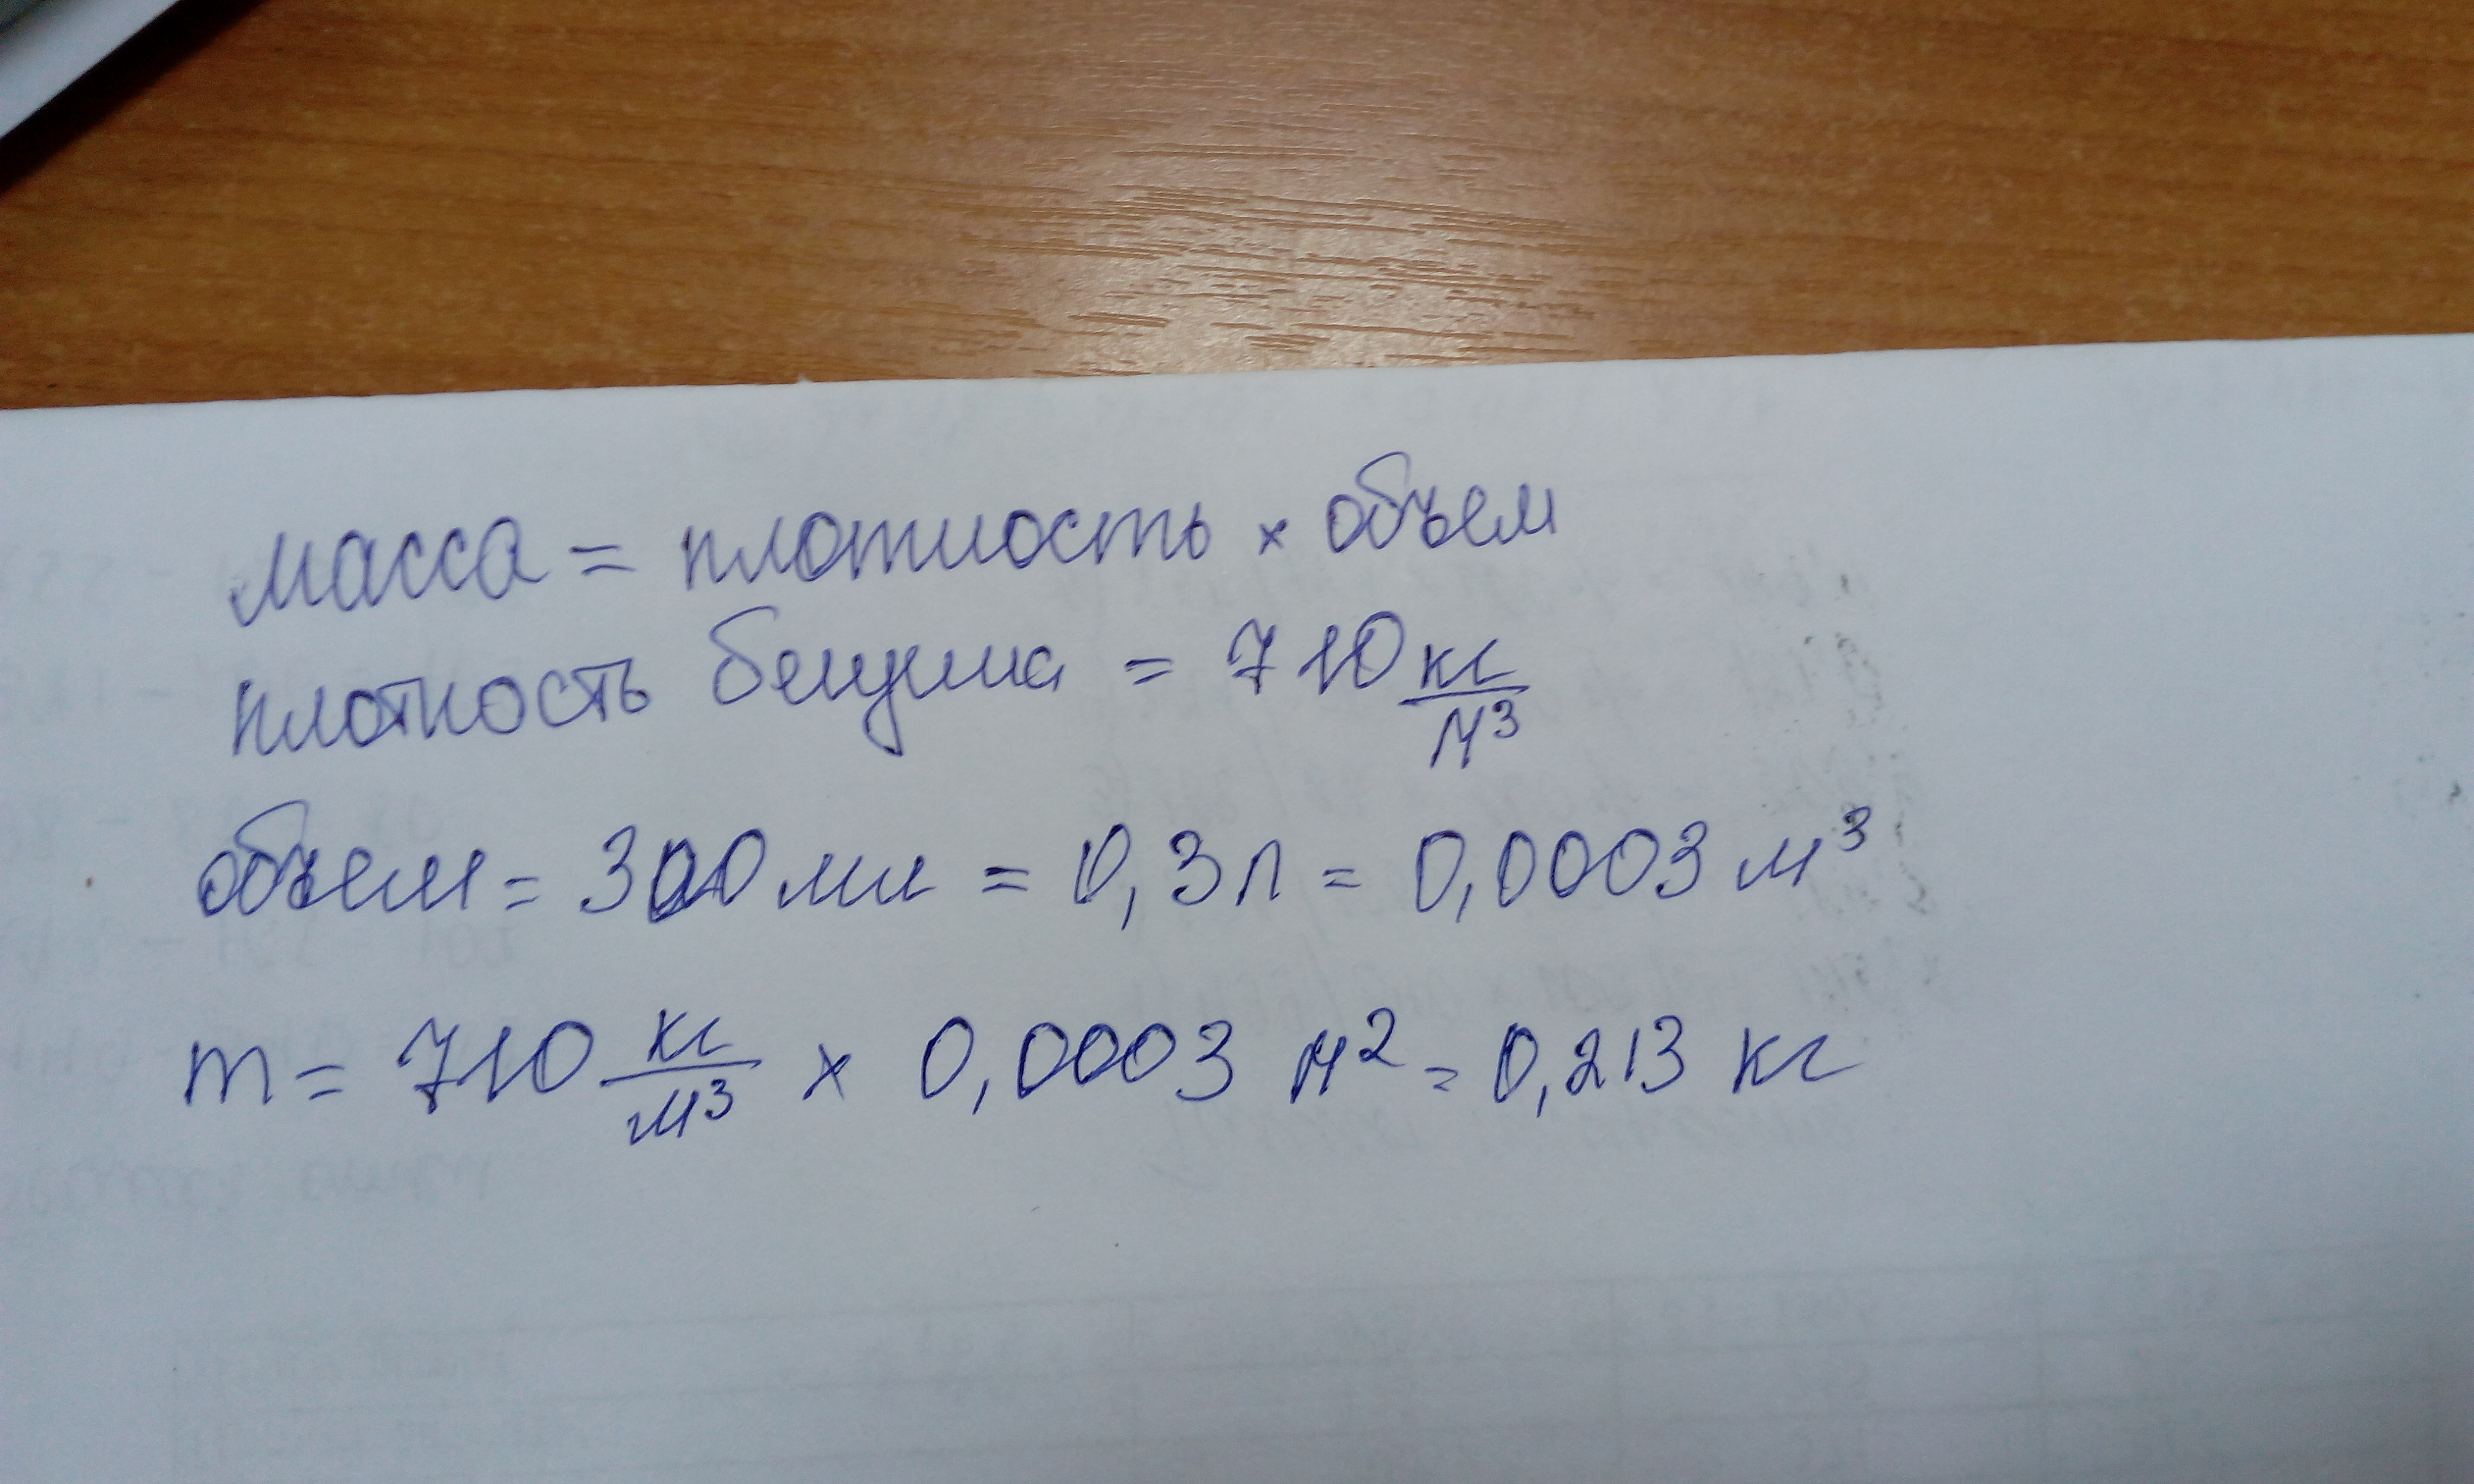 масса = плотность × объем
плотность бензина = 710 кг/м³
объем = 300 мл = 0,3л = 0,0003 м³
m = 710 кг/м³ × 0,0003 м² = 0,213 кг